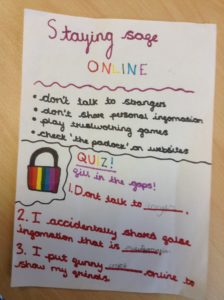 Staying sage
ONLINE
• don't talk to strangers
• don't share personal infomation
• play trustworthing games
• check 'the padlock' on websites
QUIZ!
fill in the gaps!
1. Dont talk to
2. I accidentally shared false
infomation that is
3. I put funny online to
show my friends.